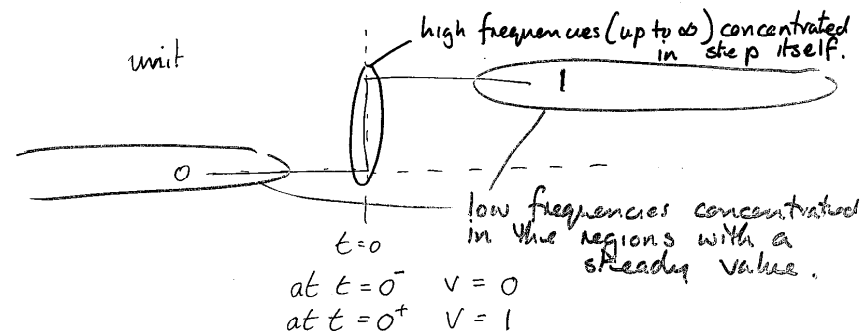 high frequencies (up to ∞) concentrated
in step itself.
unit
1
0
low frequencies concentrated
in the regions with a
steady value.
t=0
at t=0⁻ V = 0
at t=0⁺ V = 1